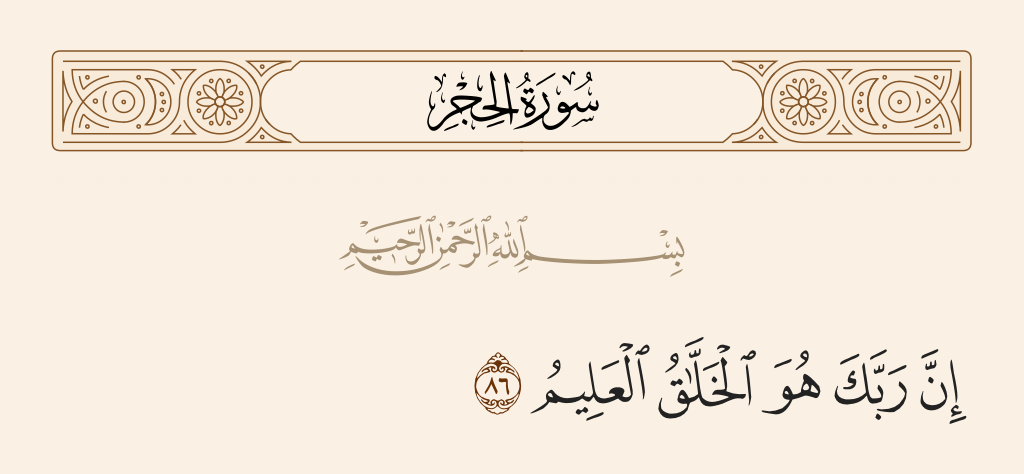 سُورَةُ الحِجْرِ
بِسْمِ ٱللَّهِ ٱلرَّحْمَٰنِ ٱلرَّحِيمِ
إِنَّ رَبَّكَ هُوَ ٱلْخَلَّٰقُ ٱلْعَلِيمُ ٨٦